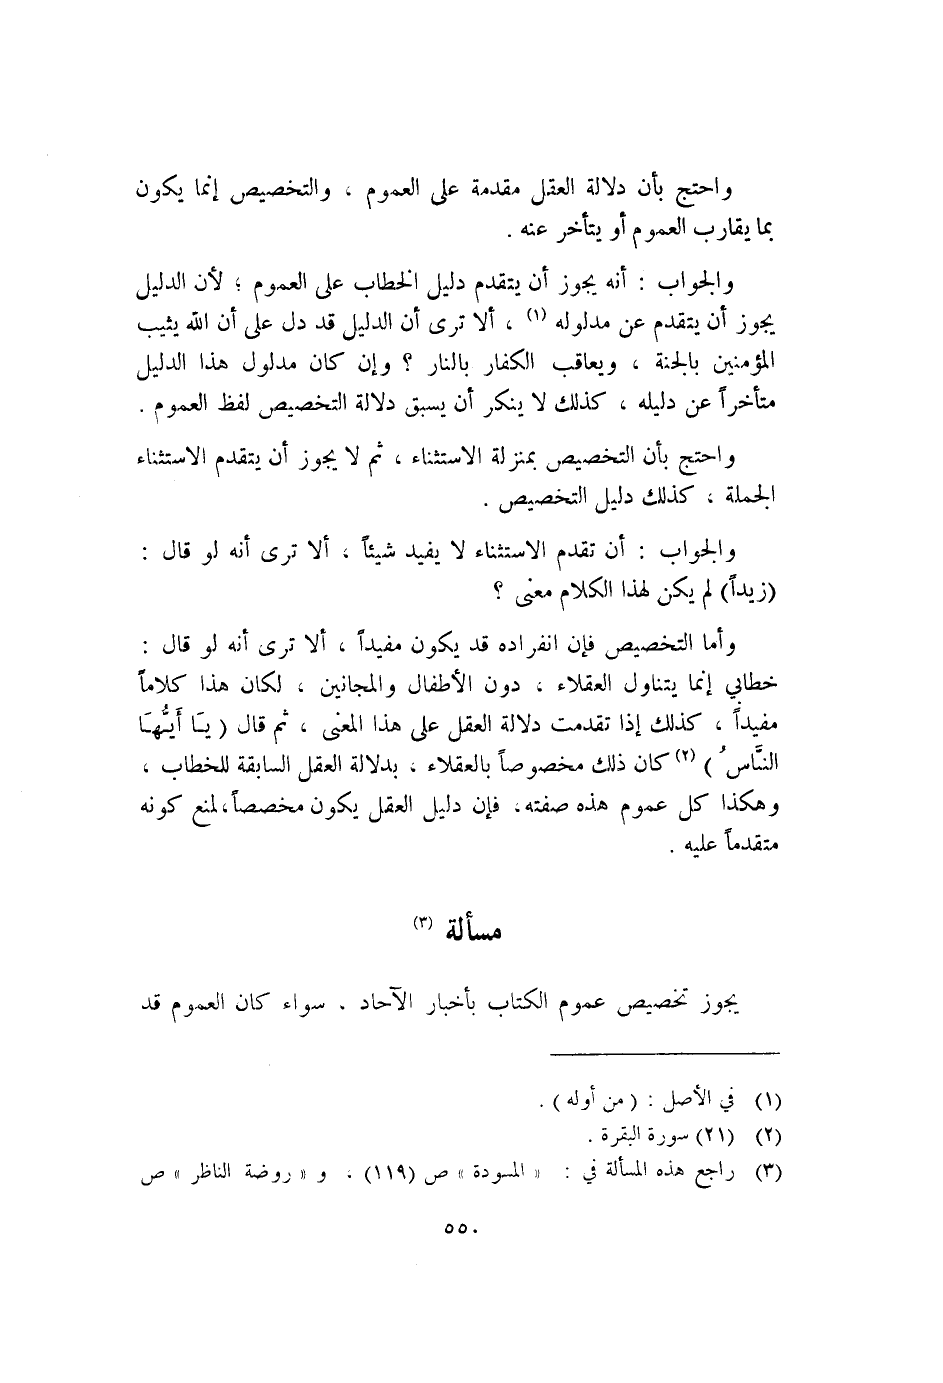 واحتج بأن دلالة العقل مقدمة على العموم ، والتخصيص إنما يكون
بما يقارب العموم أو يتأخر عنه .
والجواب : أنه يجوز أن يتقدم دليل الخطاب على العموم ؛ لأن الدليل
يجوز أن يتقدم عن مدلوله (١) ، ألا ترى أن الدليل قد دل على أن الله يثيب
المؤمنين بالجنة ، ويعاقب الكفار بالنار ؟ وإن كان مدلول هذا الدليل
متأخراً عن دليله ، كذلك لا ينكر أن يسبق دلالة التخصيص لفظ العموم .
واحتج بأن التخصيص بمنزلة الاستثناء ، ثم لا يجوز أن يتقدم الاستثناء
الجملة ، كذلك دليل التخصيص .
والجواب : أن تقدم الاستثناء لا يفيد شيئاً ، ألا ترى أنه لو قال :
(زيداً) لم يكن لهذا الكلام معنى ؟
وأما التخصيص فإن انفراده قد يكون مفيداً ، ألا ترى أنه لو قال :
خطابي إنما يتناول العقلاء ، دون الأطفال والمجانين ، لكان هذا كلاماً
مفيداً ، كذلك إذا تقدمت دلالة العقل على هذا المعنى ، ثم قال ( يَا أَيُّهَا
النَّاسُ ) (٢) كان ذلك مخصوصاً بالعقلاء ، بدلالة العقل السابقة للخطاب ،
وهكذا كل عموم هذه صفته، فإن دليل العقل يكون مخصصاً،لمنع كونه
متقدماً عليه .
مسألة (٣)
يجوز تخصيص عموم الكتاب بأخبار الآحاد . سواء كان العموم قد
(١) في الأصل : ( من أوله ) .
(٢) (٢١) سورة البقرة .
(٣) راجع هذه المسألة في : « المسودة » ص (١١٩) ، و « روضة الناظر » ص
٥٥٠